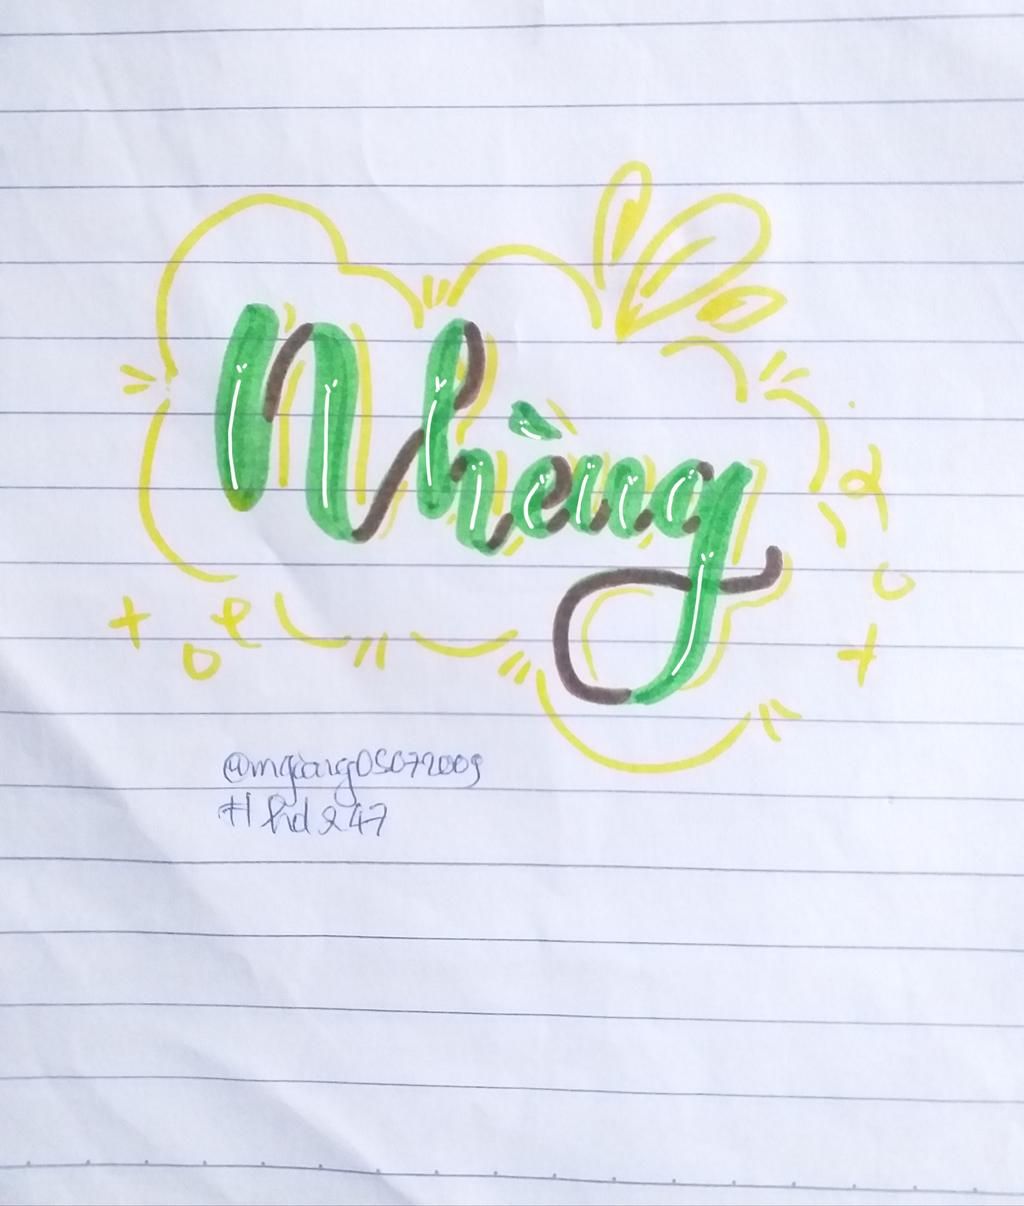 Nhèng
@mgiang05072009
#hd247